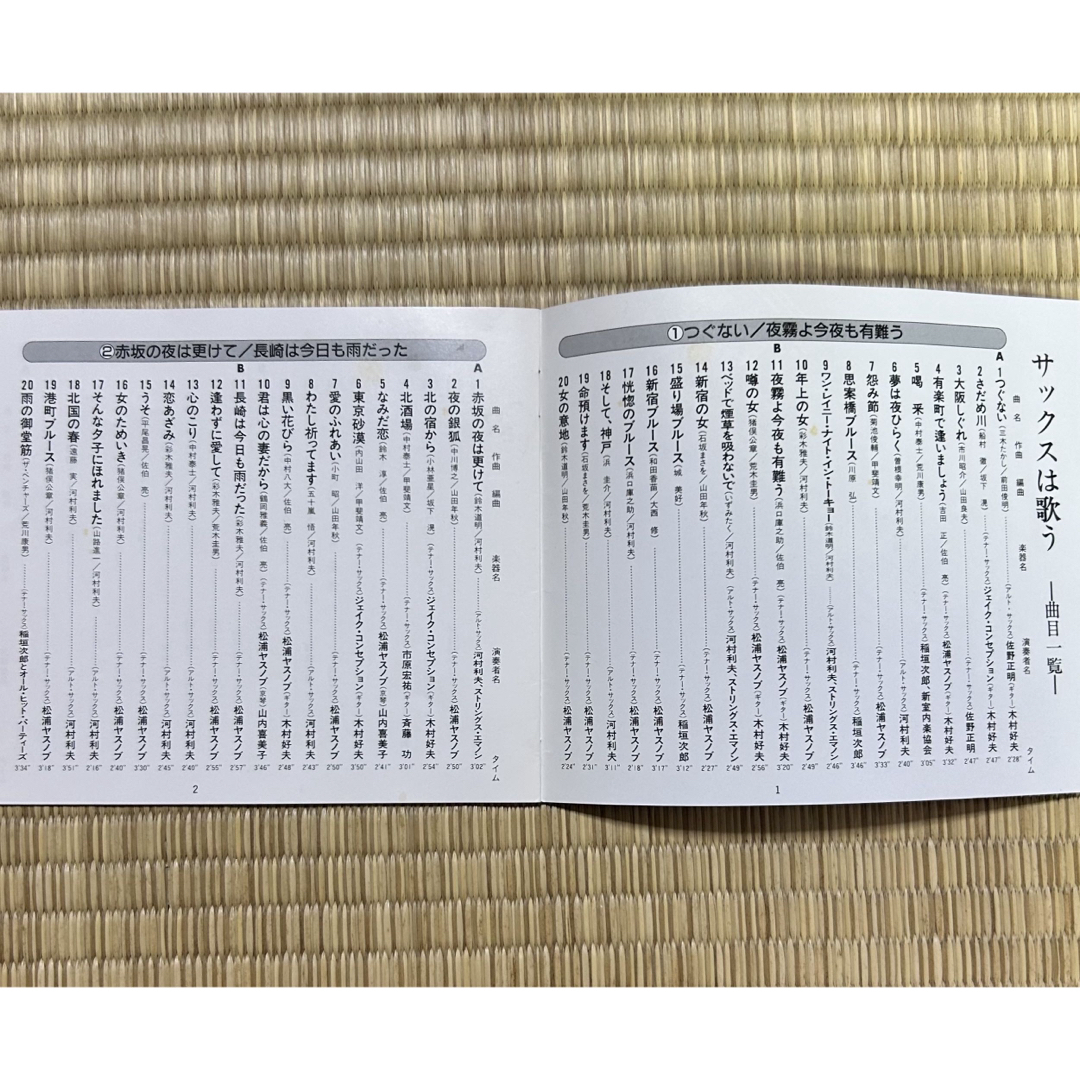 サックスは歌う ―曲目一覧―
①つぐない／夜霧よ今夜も有難う
曲名 作曲 編曲 楽器名 演奏者名 タイム
A
1 つぐない（三木たかし／前田俊明）（アルト・サックス）佐野正明（ギター）木村好夫 2'28"
2 さだめ川（船村 徹／坂下 滉）（テナー・サックス）ジェイク・コンセプション（ギター）木村好夫 2'47"
3 大阪しぐれ（市川昭介／山田良夫）（アルト・サックス）佐野正明 2'47"
4 有楽町で逢いましょう（吉田 正／佐伯 亮）（テナー・サックス）松浦ヤスノブ（ギター）木村好夫 3'32"
5 喝 采（中村泰士／荒川康男）（テナー・サックス）稲垣次郎、新室内楽協会 3'05"
6 夢は夜ひらく（曽根幸明／河村利夫）（アルト・サックス）河村利夫 2'40"
7 怨み節（菊池俊輔／甲斐靖文）（テナー・サックス）松浦ヤスノブ 3'33"
8 思案橋ブルース（川原 弘）（テナー・サックス）稲垣次郎 3'46"
9 ワン・レイニー・ナイト・イン・トーキョー（鈴木道明／河村利夫）（アルト・サックス）河村利夫、ストリングス・エマノン 2'46"
10 年上の女（彩木雅夫／河村利夫）（テナー・サックス）松浦ヤスノブ 2'49"
B
11 夜霧よ今夜も有難う（浜口庫之助／佐伯 亮）（テナー・サックス）松浦ヤスノブ（ギター）木村好夫 3'20"
12 噂の女（猪俣公章／荒木圭男）（テナー・サックス）松浦ヤスノブ（ギター）木村好夫 2'56"
13 ベッドで煙草を吸わないで（いずみたく／河村利夫）（アルト・サックス）河村利夫、ストリングス・エマノン 2'49"
14 新宿の女（石坂まさを／山田年秋）（テナー・サックス）松浦ヤスノブ 2'27"
15 盛り場ブルース（城 美好）（テナー・サックス）稲垣次郎 3'12"
16 新宿ブルース（和田香苗／大西 修）（テナー・サックス）松浦ヤスノブ 3'17"
17 恍惚のブルース（浜口庫之助／河村利夫）（テナー・サックス）松浦ヤスノブ 2'18"
18 そして、神戸（浜 圭介／河村利夫）（アルト・サックス）河村利夫 3'11"
19 命預けます（石坂まさを／荒木圭男）（テナー・サックス）松浦ヤスノブ 2'31"
20 女の意地（鈴木道明／山田年秋）（テナー・サックス）松浦ヤスノブ 2'24"
1
②赤坂の夜は更けて／長崎は今日も雨だった
曲名 作曲 編曲 楽器名 演奏者名 タイム
A
1 赤坂の夜は更けて（鈴木道明／河村利夫）（アルト・サックス）河村利夫、ストリングス・エマノン 3'02"
2 夜の銀狐（中川博之／山田年秋）（テナー・サックス）松浦ヤスノブ 2'50"
3 北の宿から（小林亜星／坂下 滉）（テナー・サックス）ジェイク・コンセプション（ギター）木村好夫 2'54"
4 北酒場（中村泰士／甲斐靖文）（テナー・サックス）市原宏祐（ギター）斉藤 功 3'01"
5 なみだ恋（鈴木 淳／佐伯 亮）（テナー・サックス）松浦ヤスノブ（京琴）山内喜美子 2'41"
6 東京砂漠（内山田 洋／甲斐靖文）（テナー・サックス）ジェイク・コンセプション（ギター）木村好夫 3'56"
7 愛のふれあい（小町 昭／山田年秋）（テナー・サックス）松浦ヤスノブ 2'50"
8 わたし祈ってます（五十嵐 悟／河村利夫）（アルト・サックス）河村利夫 2'43"
9 黒い花びら（中村八大／佐伯 亮）（テナー・サックス）松浦ヤスノブ（ギター）木村好夫 2'48"
10 君は心の妻だから（鶴岡雅義／佐伯 亮）（テナー・サックス）松浦ヤスノブ（京琴）山内喜美子 3'46"
B
11 長崎は今日も雨だった（彩木雅夫／河村利夫）（テナー・サックス）松浦ヤスノブ 2'57"
12 逢わずに愛して（彩木雅夫／荒木圭男）（テナー・サックス）松浦ヤスノブ 2'55"
13 心のこり（中村泰士／河村利夫）（アルト・サックス）河村利夫 2'40"
14 恋あざみ（彩木雅夫／河村利夫）（アルト・サックス）河村利夫 2'45"
15 うそ（平尾昌晃／佐伯 亮）（テナー・サックス）松浦ヤスノブ 2'40"
16 女のためいき（猪俣公章／山田年秋）（テナー・サックス）松浦ヤスノブ 2'40"
17 そんな夕子にほれました（山路進一／河村利夫）（アルト・サックス）河村利夫 2'16"
18 北国の春（遠藤 実／河村利夫）（アルト・サックス）河村利夫 3'51"
19 港町ブルース（猪俣公章／河村利夫）（テナー・サックス）松浦ヤスノブ 3'18"
20 雨の御堂筋（ザ・ベンチャーズ／荒川康男）（テナー・サックス）稲垣次郎とオール・ヒット・パーティーズ 3'34"
2